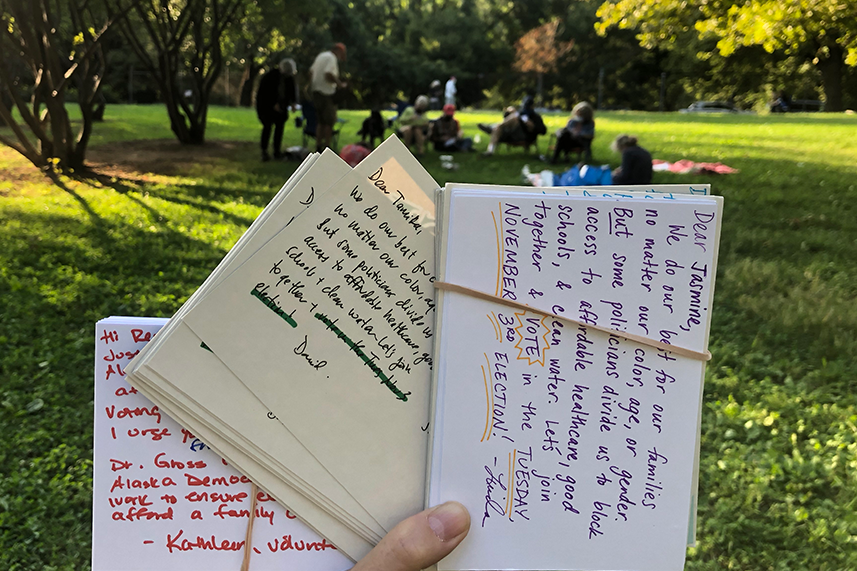 Hi
Voting
I urge
Dr. Gross
Alaska
work to ensure
afford a family
- Kathleen,
Dear
We do our best for
no matter our color,
But some politicians divide
access to affordable healthcare,
school + clean water. Let's join
together +
David.
Dear Jasmine,
We do our best for our families
no matter our color, age, or gender.
But some politicians divide us to block
access to affordable healthcare, good
schools, & clean water. Let's join
together & VOTE in the TUESDAY
NOVEMBER 3RD ELECTION!
- Linda